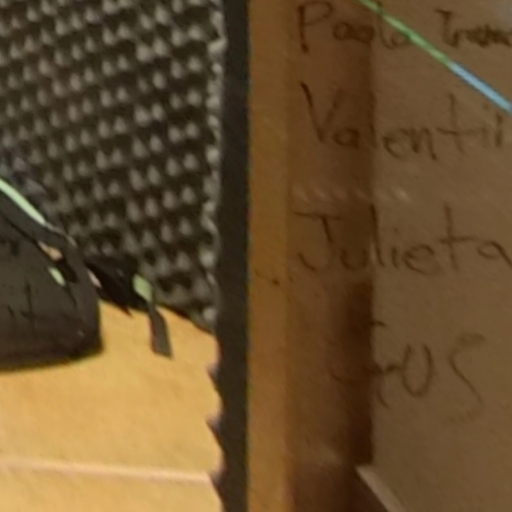 Paola
Valenti
Julieta
GUS